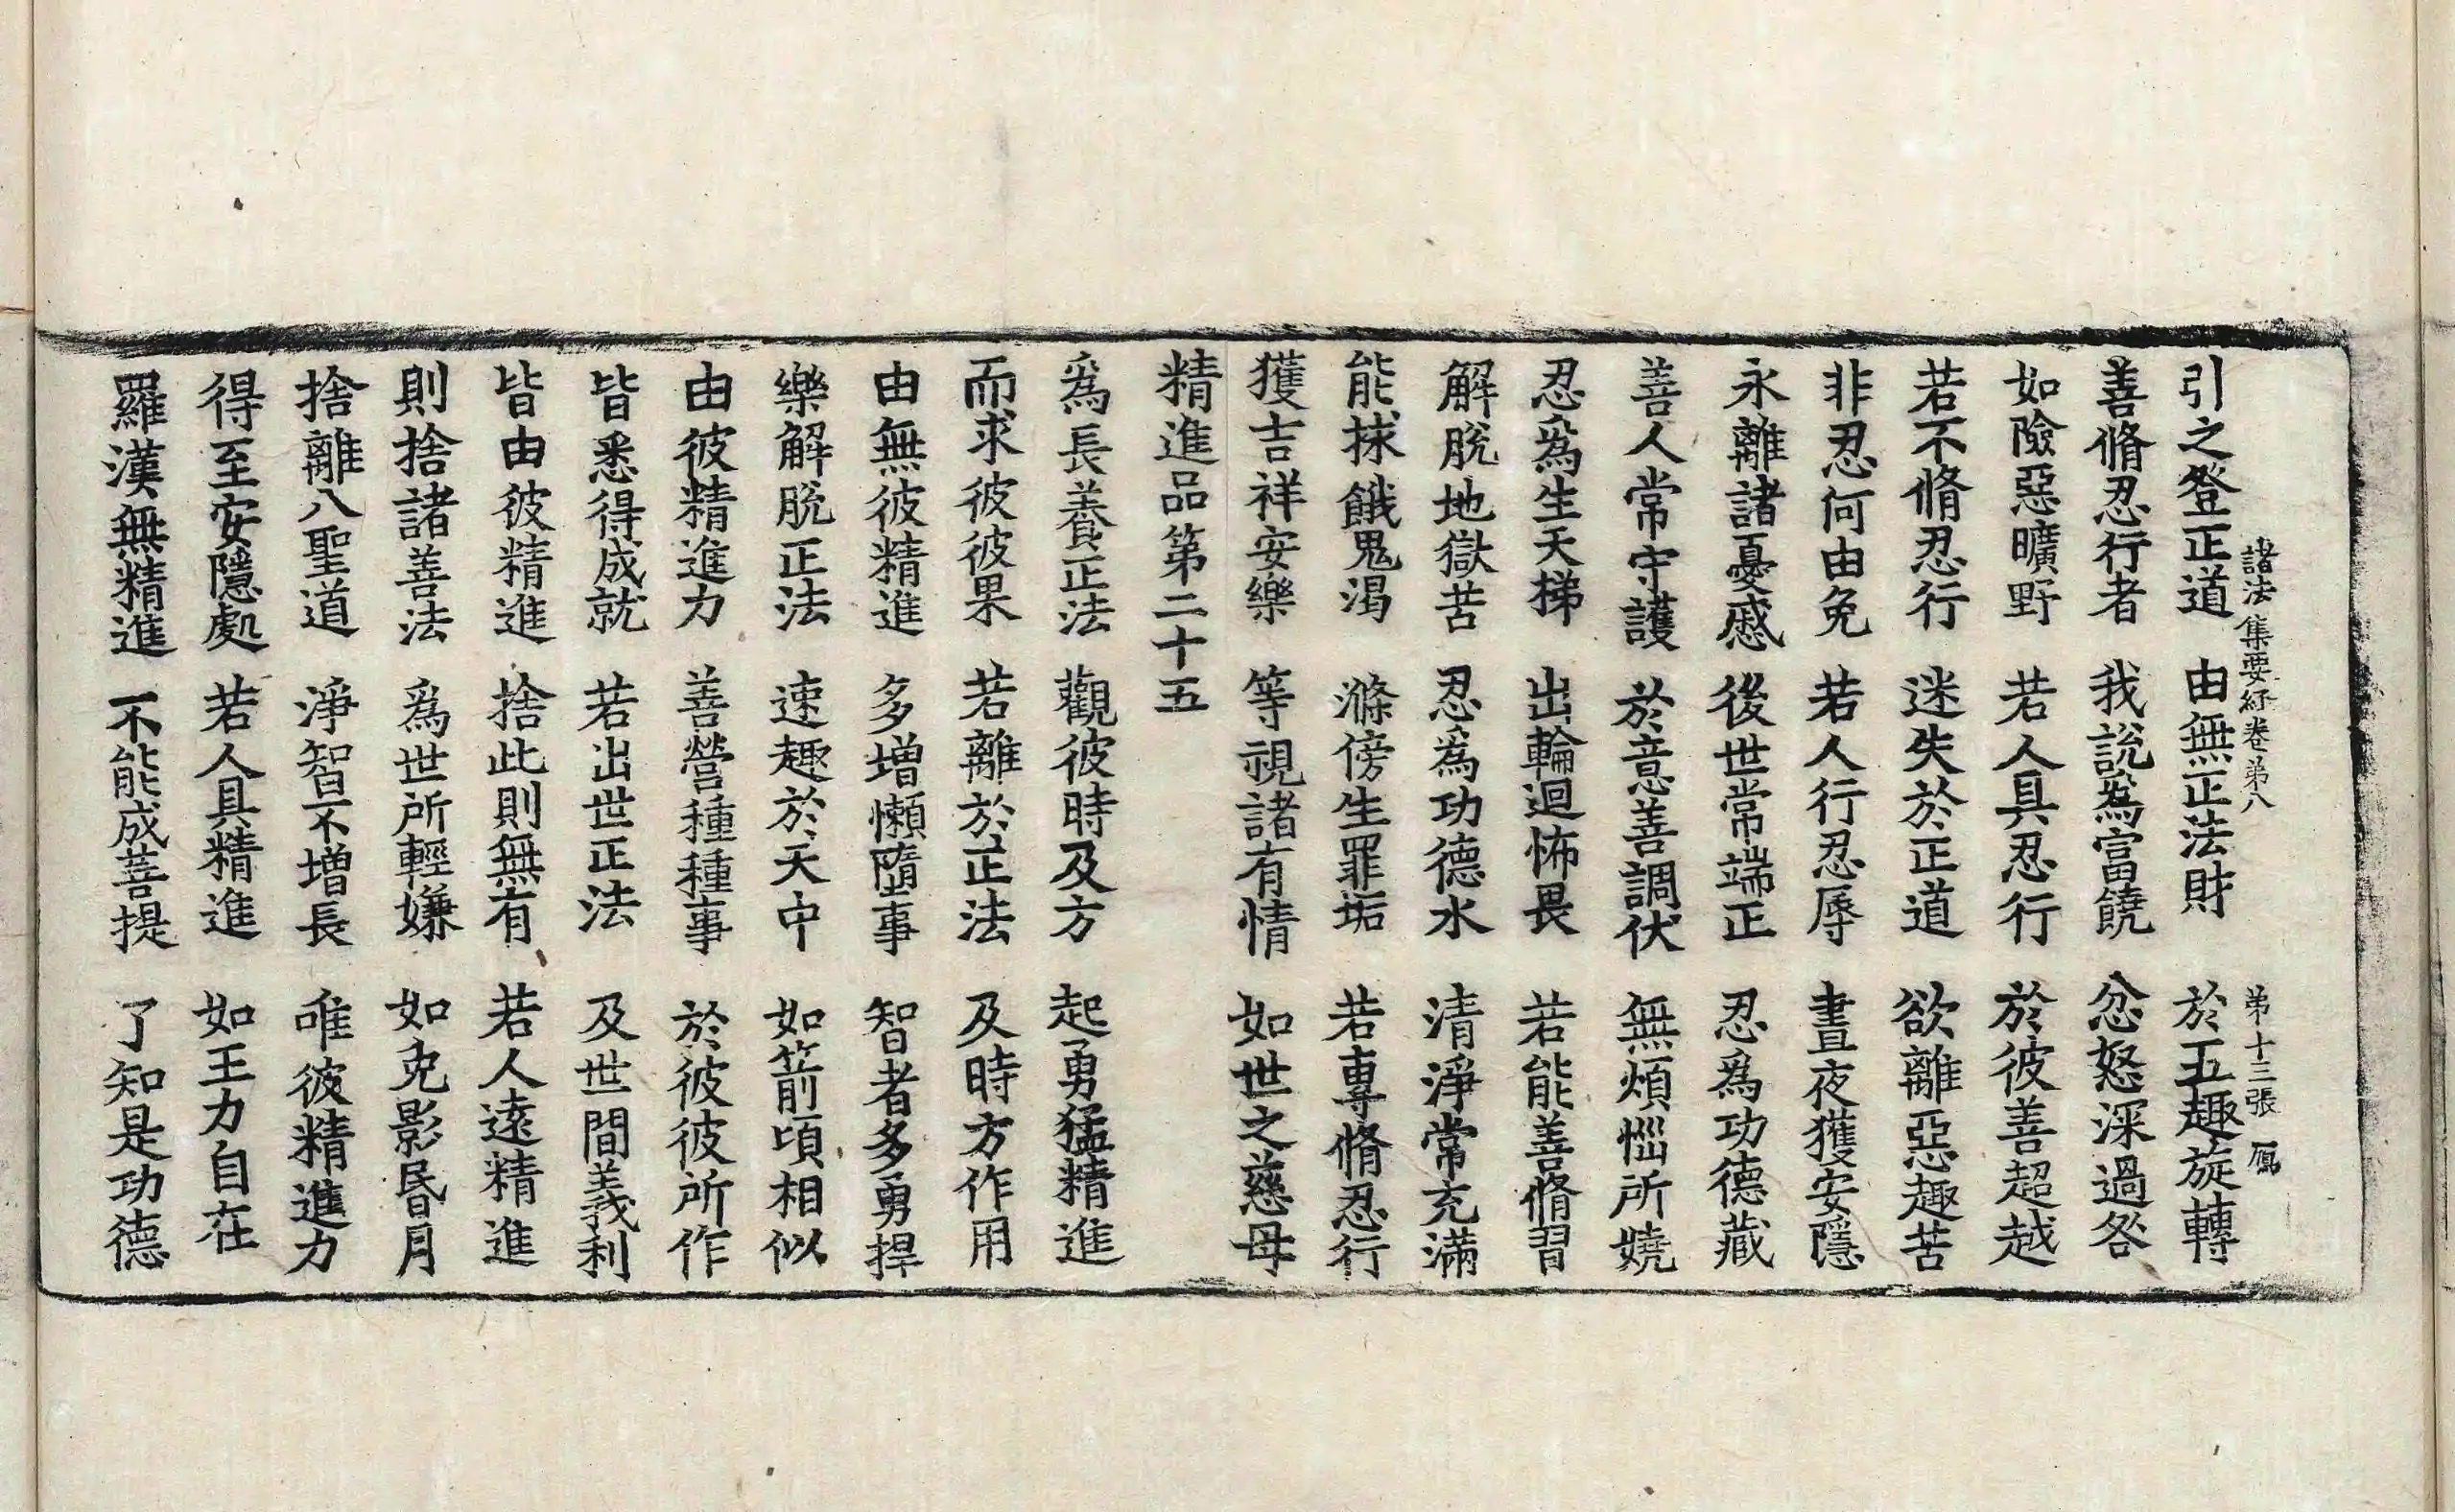 諸法集要經卷第八 第十三張 鳳
引之登正道 由無正法財 於五趣旋轉
善脩忍行者 我說為富饒 忿怒深過咎
如險惡曠野 若人具忍行 於彼善超越
若不脩忍行 迷失於正道 欲離惡趣苦
非忍何由免 若人行忍辱 晝夜獲安隱
永離諸憂慼 後世常端正 忍為功德藏
善人常守護 於意善調伏 無煩惱所嬈
忍為生天梯 出輪迴怖畏 若能善脩習
解脫地獄苦 忍為功德水 清淨常充滿
能救餓鬼渴 滌傍生罪垢 若專脩忍行
獲吉祥安樂 等視諸有情 如世之慈母
精進品第二十五
為長養正法 觀彼時及方 起勇猛精進
而求彼彼果 若離於正法 及時方作用
由無彼精進 多增懶墮事 智者多勇捍
樂解脫正法 速趣於天中 如箭頃相似
由彼精進力 善營種種事 於彼彼所作
皆悉得成就 若出世正法 及世間義利
皆由彼精進 捨此則無有 若人遠精進
則捨諸善法 為世所輕嫌 如克影昬月
捨離八聖道 淨智不增長 唯彼精進力
得至安隱處 若人具精進 如王力自在
羅漢無精進 不能成菩提 了知是功德